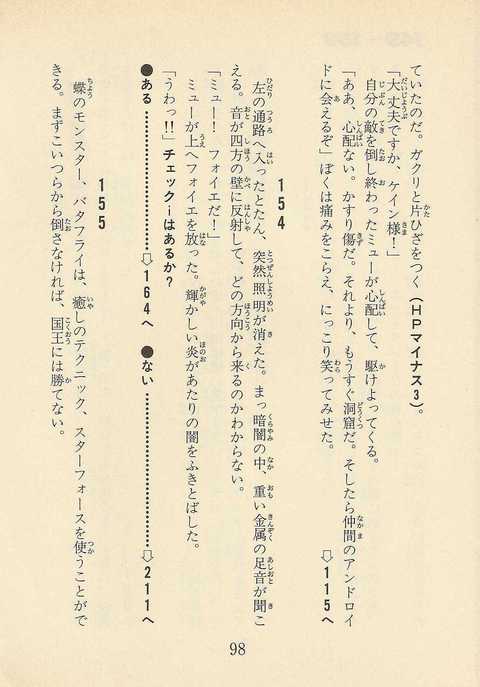 ていたのだ。ガクリと片ひざをつく(HPマイナス3)。
「大丈夫ですか、ケイン様!」
自分の敵を倒し終わったミューが心配して、駆けよってくる。
「ああ、心配ない。かすり傷だ。それより、もうすぐ洞窟だ。そしたら仲間のアンドロイ
ドに会えるぞ」ぼくは痛みをこらえ、にっこり笑ってみせた。
⇨115へ
154
左の通路へ入ったとたん、突然照明が消えた。まっ暗闇の中、重い金属の足音が聞こ
える。音が四方の壁に反射して、どの方向から来るのかわからない。
「ミュー!フォイエだ!」
ミューが上へフォイエを放った。輝かしい炎があたりの闇をふきとばした。
「うわっ!!」チェックiはあるか?
●ある……………⇨164へ ●ない……………⇨211へ
155
蝶のモンスター、バタフライは、癒しのテクニック、スターフォースを使うことがで
きる。まずこいつらから倒さなければ、国王には勝てない。
98